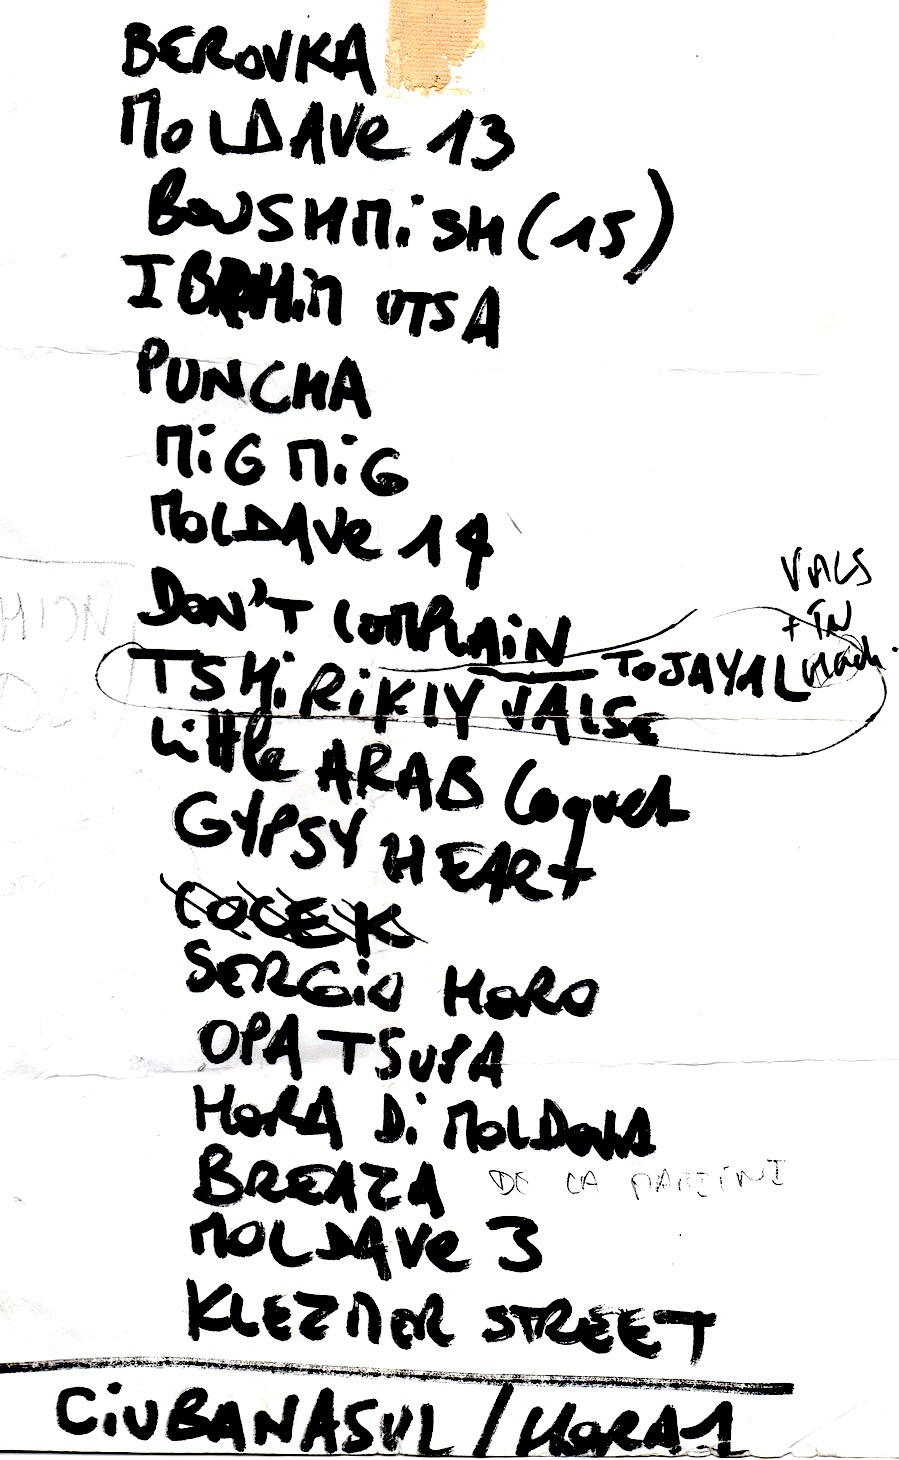 BEROVKA
MOLDAVe 13
BOUSHMiSH (15)
IBRAHiM UTSA
PUNCHA
MiG MiG
MOLDAVe 14
DON'T COMPLAiN
VALS
+ IN
TSHiRiKLY VALSE TO JAYAL
LiTTle ARAB Coquet
GYPSY HEART
COCEK
SERGiO HORO
OPA TSUPA
HORA Di MOLDOVA
BREAZA DE LA
MOLDAVe 3
KLEZMER STREET
CiUBANASUL / HORA 1